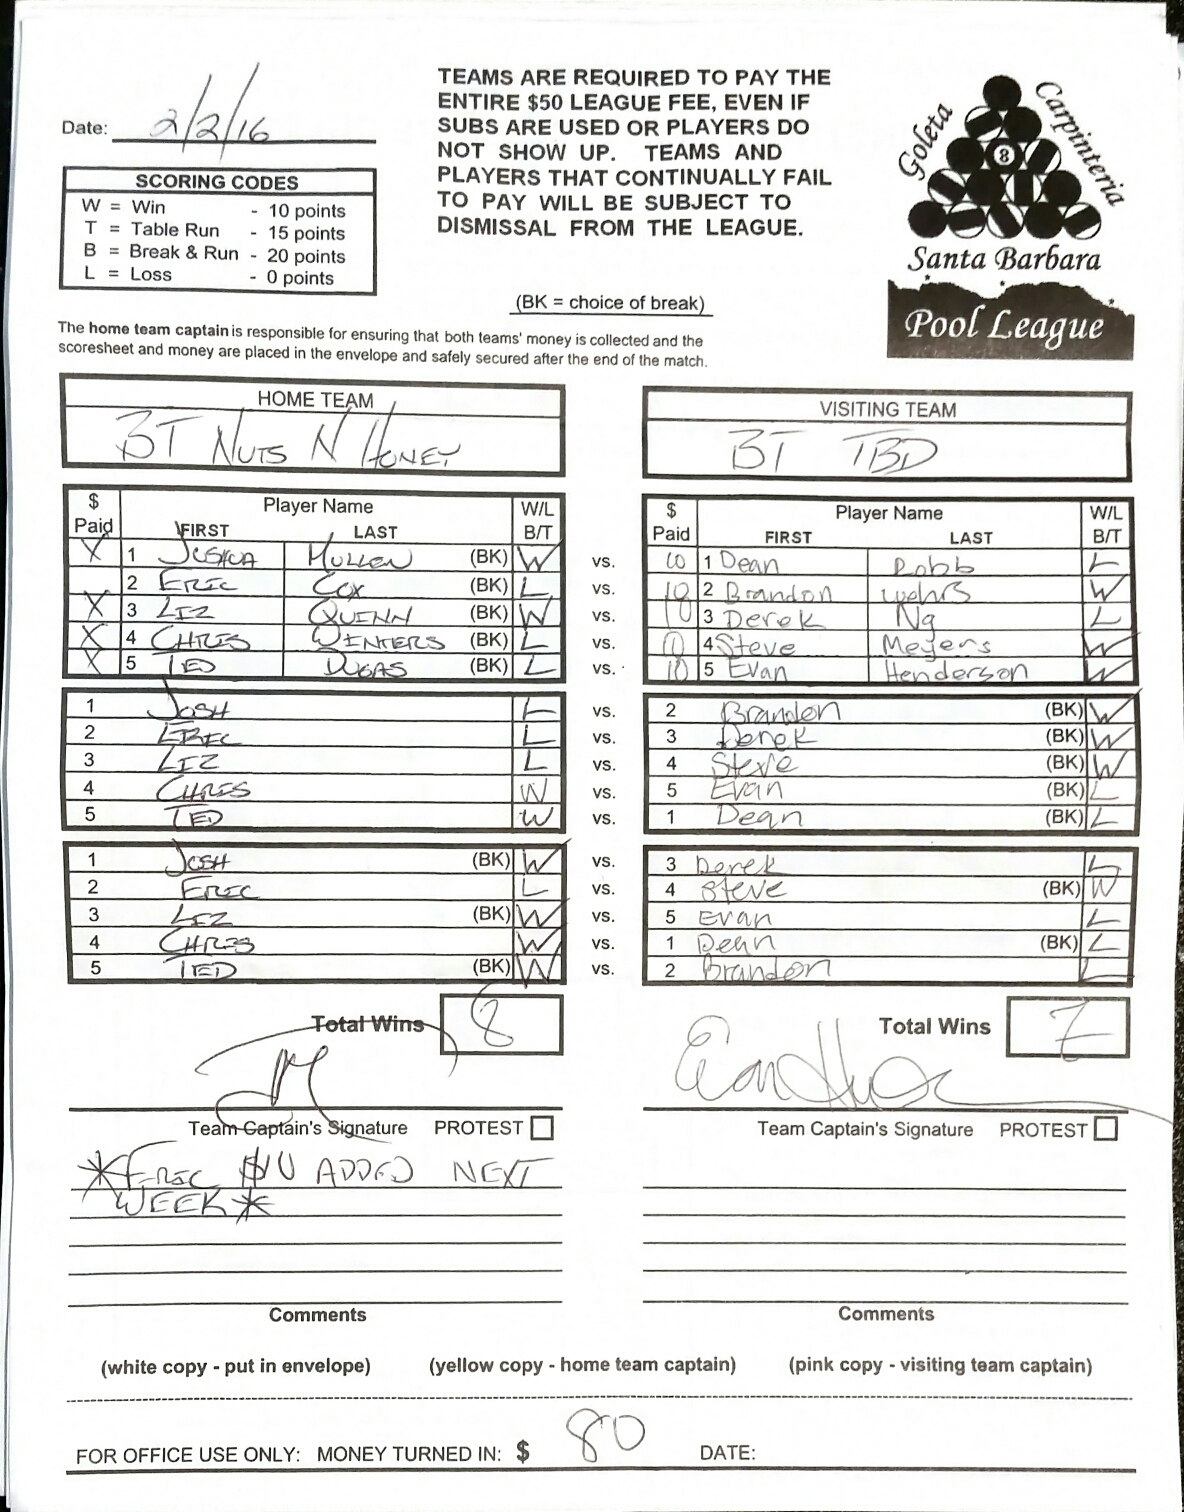 Date: 2/2/16
TEAMS ARE REQUIRED TO PAY THE
ENTIRE $50 LEAGUE FEE, EVEN IF
SUBS ARE USED OR PLAYERS DO
NOT SHOW UP. TEAMS AND
PLAYERS THAT CONTINUALLY FAIL
TO PAY WILL BE SUBJECT TO
DISMISSAL FROM THE LEAGUE.
Goleta
Carpinteria
8
Santa Barbara
Pool League
SCORING CODES
W = Win - 10 points
T = Table Run - 15 points
B = Break & Run - 20 points
L = Loss - 0 points
(BK = choice of break)
The home team captain is responsible for ensuring that both teams' money is collected and the
scoresheet and money are placed in the envelope and safely secured after the end of the match.
HOME TEAM
BT NUTS N HONEY
VISITING TEAM
BT TBD
$ Paid Player Name FIRST LAST W/L B/T
$ Paid Player Name FIRST LAST W/L B/T
X 1 JOSHUA MULLEN (BK) W vs. 10 1 Dean Robb L
2 ERIC COX (BK) L vs. 10 2 Brandon Wehrs W
X 3 LIZ QUINN (BK) W vs. 10 3 Derek Ng L
X 4 CHRIS WINTERS (BK) L vs. 10 4 Steve Meyers W
X 5 TED DUGAS (BK) L vs. 10 5 Evan Henderson W
1 JOSH L vs. 2 Brandon (BK) W
2 ERIC L vs. 3 Derek (BK) W
3 LIZ L vs. 4 Steve (BK) W
4 CHRIS W vs. 5 Evan (BK) L
5 TED W vs. 1 Dean (BK) L
1 JOSH (BK) W vs. 3 Derek L
2 ERIC L vs. 4 Steve (BK) W
3 LIZ (BK) W vs. 5 Evan L
4 CHRIS W vs. 1 Dean (BK) L
5 TED (BK) W vs. 2 Brandon L
Total Wins 8
Total Wins 7
Team Captain's Signature PROTEST
Team Captain's Signature PROTEST
*ERIC $10 ADDED NEXT
WEEK*
Comments
Comments
(white copy - put in envelope) (yellow copy - home team captain) (pink copy - visiting team captain)
FOR OFFICE USE ONLY: MONEY TURNED IN: $ 80 DATE: